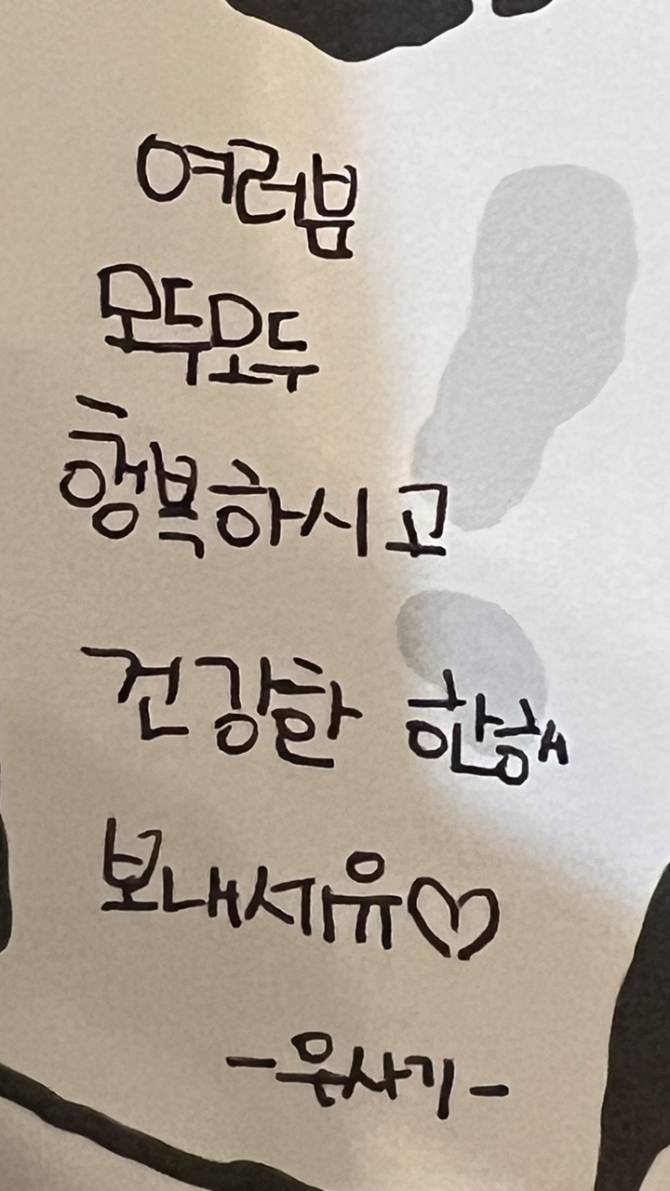 여러붐
모두모두
행복하시고
건강한 한해
보내서유♡
-운사기-